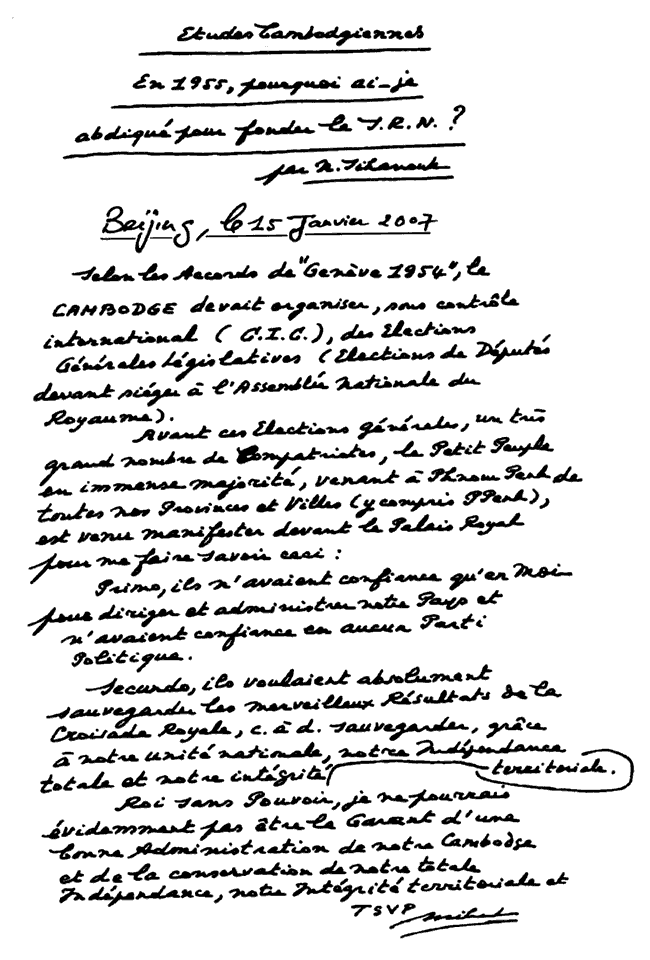 Etudes Cambodgiennes
En 1955, pourquoi ai-je
abdiqué pour fonder le S.R.N. ?
par N. Sihanouk
Beijing, le 15 Janvier 2007
Selon les Accords de "Genève 1954", le
CAMBODGE devait organiser, sous contrôle
international (C.I.C.), des Elections
Générales Législatives (Elections de Députés
devant siéger à l'Assemblée Nationale du
Royaume).
Avant ces Elections générales, un très
grand nombre de Compatriotes, le Petit Peuple
en immense majorité, venant à Phnom Penh de
toutes nos Provinces et Villes (y compris PPenh),
est venu manifester devant le Palais Royal
pour me faire savoir ceci :
Primo, ils n'avaient confiance qu'en Moi
pour diriger et administrer notre Pays et
n'avaient confiance en aucun Parti
Politique.
Secundo, ils voulaient absolument
sauvegarder les merveilleux Résultats de la
Croisade Royale, c. à d. sauvegarder, grâce
à notre unité nationale, notre Indépendance
totale et notre intégrité territoriale.
Roi sans Pouvoir, je ne pourrais
évidemment pas être le Garant d'une
bonne Administration de notre Cambodge
et de la conservation de notre totale
Indépendance, notre Intégrité territoriale et
TSVP